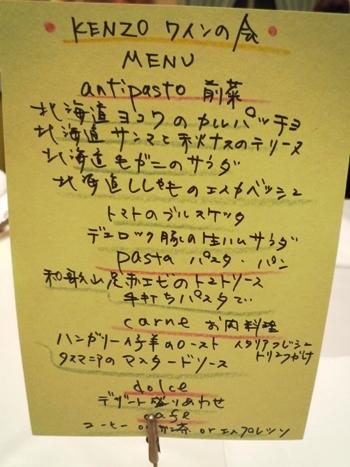 KENZO ワインの会
MENU
antipasto 前菜
北海道ヨコワのカルパッチョ
北海道サンマと秋ナスのテリーヌ
北海道毛ガニのサラダ
北海道ししゃものエスカベッシュ
トマトのブルスケッタ
デュロック豚の生ハムサラダ
pasta パスタ・パン
和歌山足赤エビのトマトソース
手打ちパスタで
carne お肉料理
ハンガリー仔羊のロースト イタリアフレッシュ
トリュフがけ
タスマニアのマスタードソース
dolce
デザート盛りあわせ
cafe
コーヒー or 紅茶 or エスプレッソ